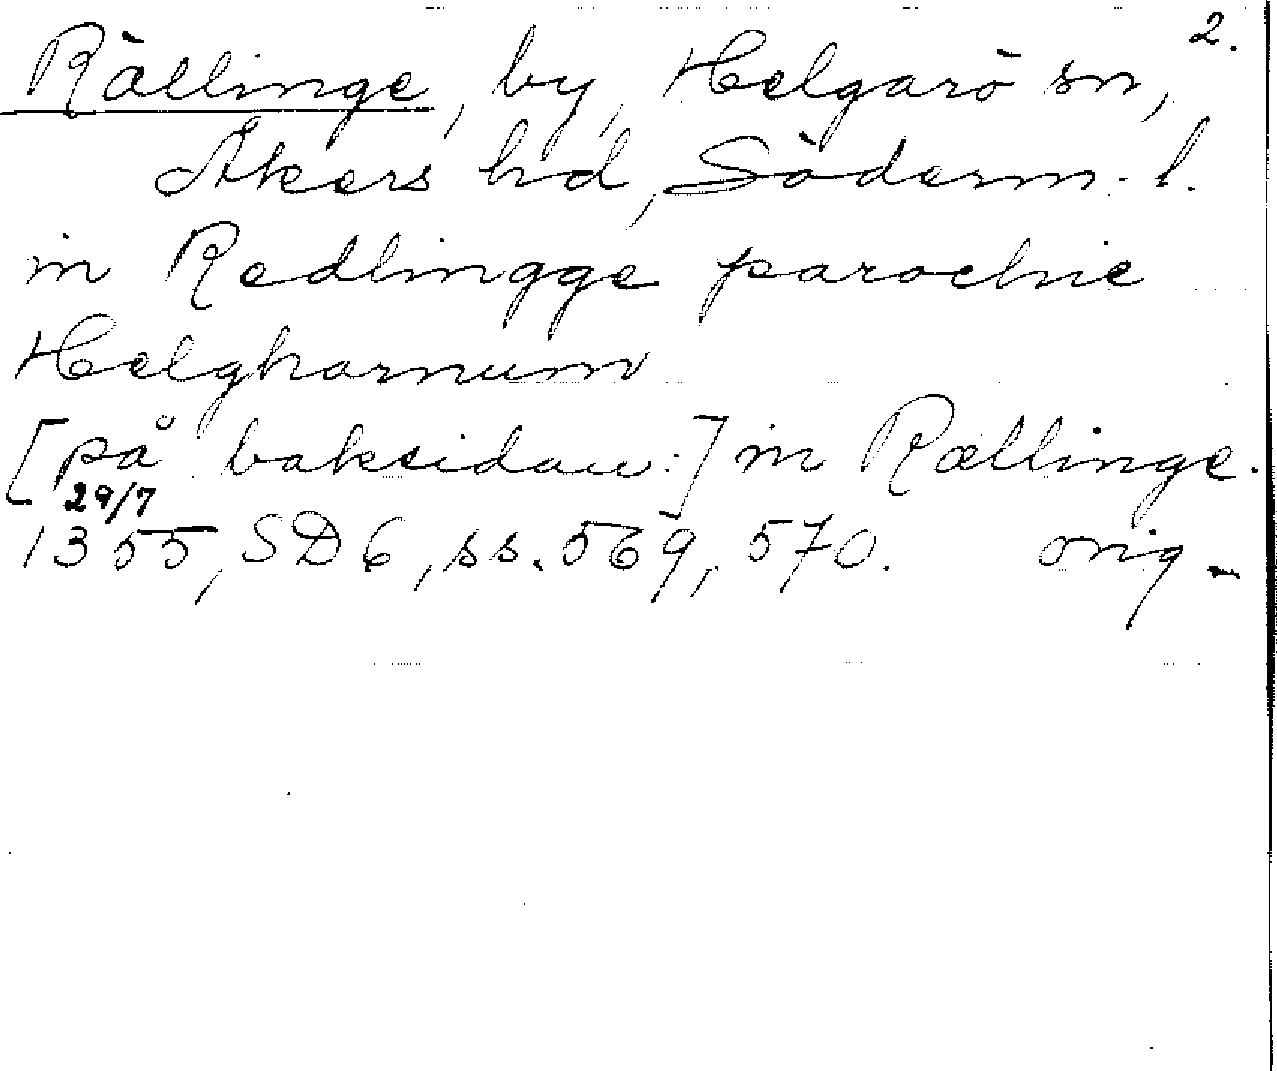 2.
Rällinge, by, Helgarö sn,
Åkers hd, Söderm. l.
in Redlingge parochie
Helgharnum
[på baksidan:] in Rællinge.
29/7
1355, SD 6, ss. 569, 570. orig.